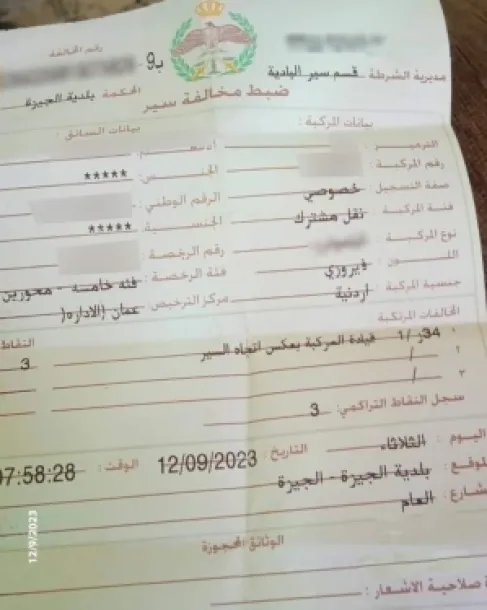 رقم المخالفة
ب9
مديرية الشرطة : قسم سير البادية
المحكمة : بلدية الجيزة
ضبط مخالفة سير
بيانات المركبة :
بيانات السائق :
الترميز :
الاسم :
رقم المركبة :
الجنس : *****
صفة التسجيل : خصوصي
الرقم الوطني :
فئة المركبة : نقل مشترك
الجنسية : *****
نوع المركبة :
رقم الرخصة :
اللون : فيروزي
فئة الرخصة : فئه خامسه - محورين
جنسية المركبة : اردنية
مركز الترخيص : عمان (الاداره(
المخالفات المرتكبة
النقاط
١ 34/ر1 قيادة المركبة بعكس اتجاه السير 3
٢ /
٣ /
سجل النقاط التراكمي : 3
اليوم : الثلاثاء التاريخ : 12/09/2023 الوقت : 07:58:28
الموقع : بلدية الجيزة - الجيزة
الشارع : العام
الوثائق المحجوزة
صلاحية الاشعار :
12/9/2023